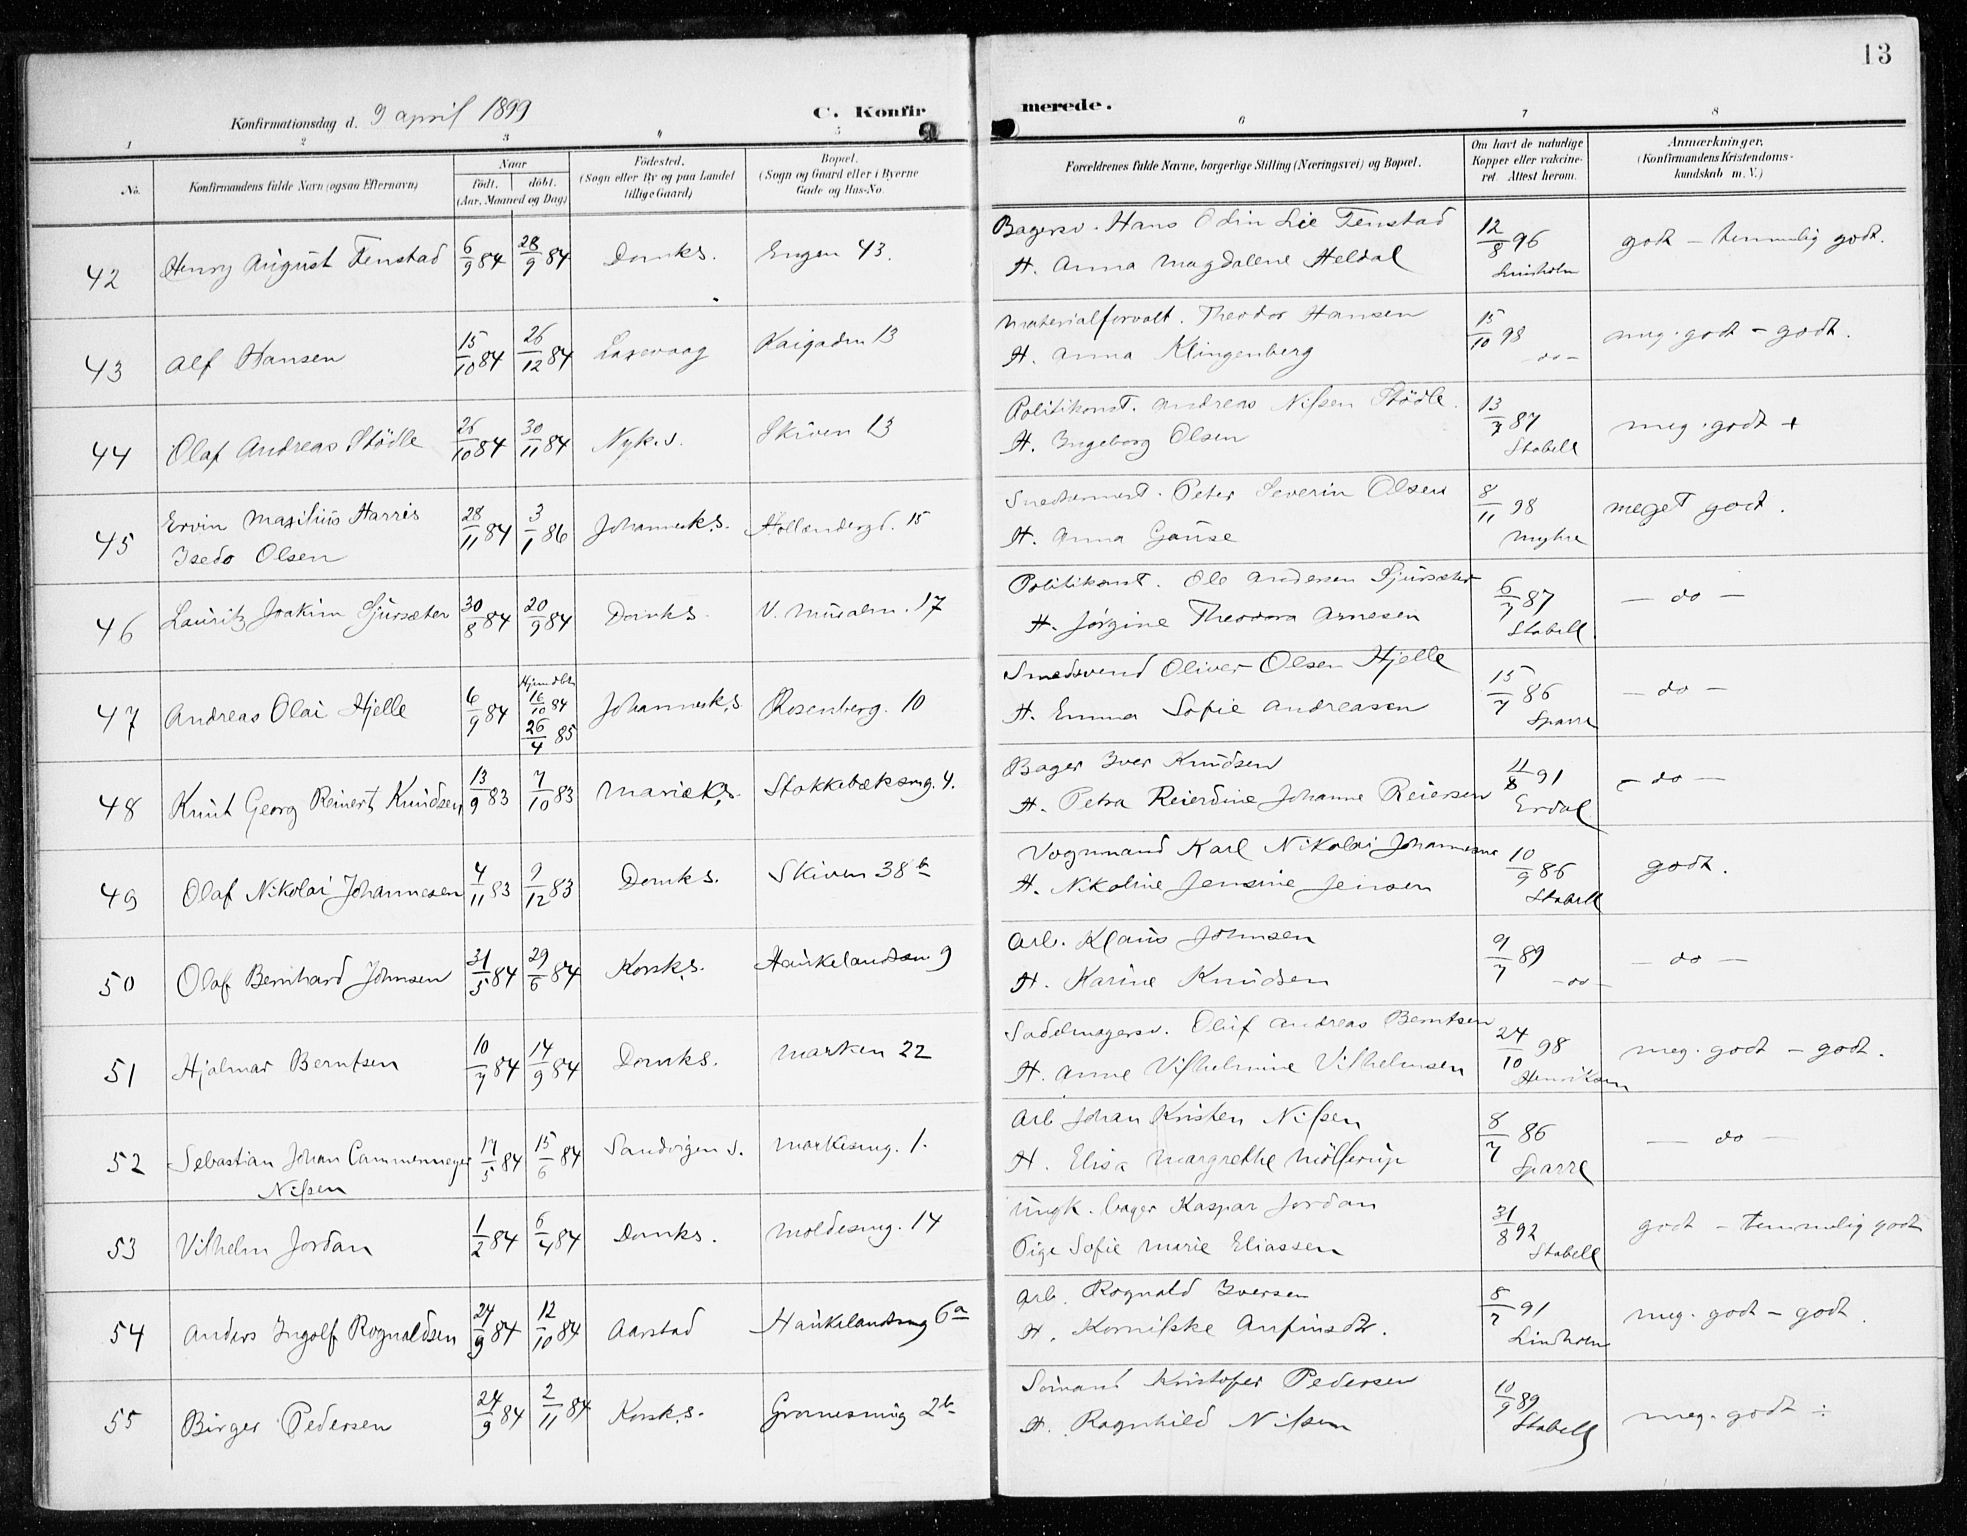 13
Konfirmationsdag d. 9 april 1899
C. Konfirmerede.
1 2 3 4 5 6 7 8
No.
Konfirmandens fulde Navn (ogsaa Efternavn)
Naar
födt. döbt.
(Aar, Maaned og Dag)
Födested.
(Sogn eller By og paa Landet
tillige Gaard)
Bopæl.
(Sogn og Gaard eller i Byerne
Gade og Hus-No.
Forældrenes fulde Navne, borgerlige Stilling (Næringsvei) og Bopæl.
Om havt de naturlige
Kopper eller vakcine-
ret Attest herom.
Anmærkninger.
(Konfirmandens Kristendoms-
kundskab m. V.)
42 Henry August Tenstad 6/9 84 28/9 84 Domks. Engen 43. Bagersv. Hans Odin Lie Tenstad 12/8 96 godt - temmelig godt.
H. Anna Magdalene Heldal Lindholm
43 Alf Hansen 15/10 84 26/12 84 Laxevaag Kaigaden 13 Materialforvalt. Theodor Hansen 15/10 98 meg. godt - godt.
H. Anna Klingenberg -do-
44 Olaf Andreas Stödle 26/10 84 30/11 84 Nyk.s. Skiven 13 Politikonst. Andreas Nilsen Stödle. 13/7 87 meg. godt +
H. Ingeborg Olsen Stabell
45 Ervin Maxilius Harris 28/11 84 3/1 86 Johannesk.s. Hollænderg. 15 Peter Severin Olsen 8/11 98 meget godt.
Isedo Olsen H. Anna Gause Myhre
46 Lauritz Joakim Sjursæter 30/8 84 20/9 84 Domks. V. Mualm. 17 Politikonst. Ole Andersen Sjursæter 6/7 87 - do -
H. Jörgine Theodora Arnesen Stabell
47 Andreas Olai Hjelle 6/9 84 Hjemdbt. 16/10 84 26/4 85 Johannesk.s. Rosenberg. 10 Smedsvend Oliver Olsen Hjelle 15/7 86 - do -
H. Emma Sofie Andreasen Sparre
48 Knut Georg Reinert Knudsen 13/9 83 7/10 83 Mariek.s. Stokkebæksmg. 4. Bager Iver Knudsen 11/8 91 - do -
H. Petra Reierdine Johanne Reiersen Erdal
49 Olaf Nikolai Johannesen 4/11 83 9/12 83 Domks. Skiven 38 b Vognmand Karl Nikolai Johannesen 10/9 86 godt.
H. Nikoline Jensine Jensen Stabell
50 Olaf Bernhard Johnsen 31/5 84 29/6 84 Korsk.s. Haukelandsm 9 Arb. Klaus Johnsen 9/7 89 - do -
H. Karine Knudsen -do-
51 Hjalmar Berntsen 10/7 84 14/9 84 Domks. Marken 22 Sadelmagersv. Oluf Andreas Berntsen 24/10 98 meg. godt - godt.
H. Anne Vilhelmine Vilhelmsen Henriksen
52 Sebastian Johan Cammermeyer 17/5 84 15/6 84 Sandvigen s. Markesmg. 1. Arb Johan Kristen Nilsen 8/7 86 - do -
Nilsen H. Elisa Margrethe Möllerup Sparre
53 Vilhelm Jordan 1/2 84 6/4 84 Domks. Moldesmg. 14 Ungk. bager Kaspar Jordan 31/8 92 godt - temmelig godt
Pige Sofie Marie Eliassen Stabell
54 Anders Ingolf Rognaldsen 24/9 84 12/10 84 Aarstad Haukelandsmg 6 a Arb. Rognald Iversen 8/7 91 meg. godt - godt.
H. Kornilske Anfinsdtr. Lindholm
55 Birger Pedersen 24/9 84 2/11 84 Korsk.s. 2 b Sömand Kristofer Pedersen 10/9 89 meg. godt ÷
H. Ragnhild Nilsen Stabell